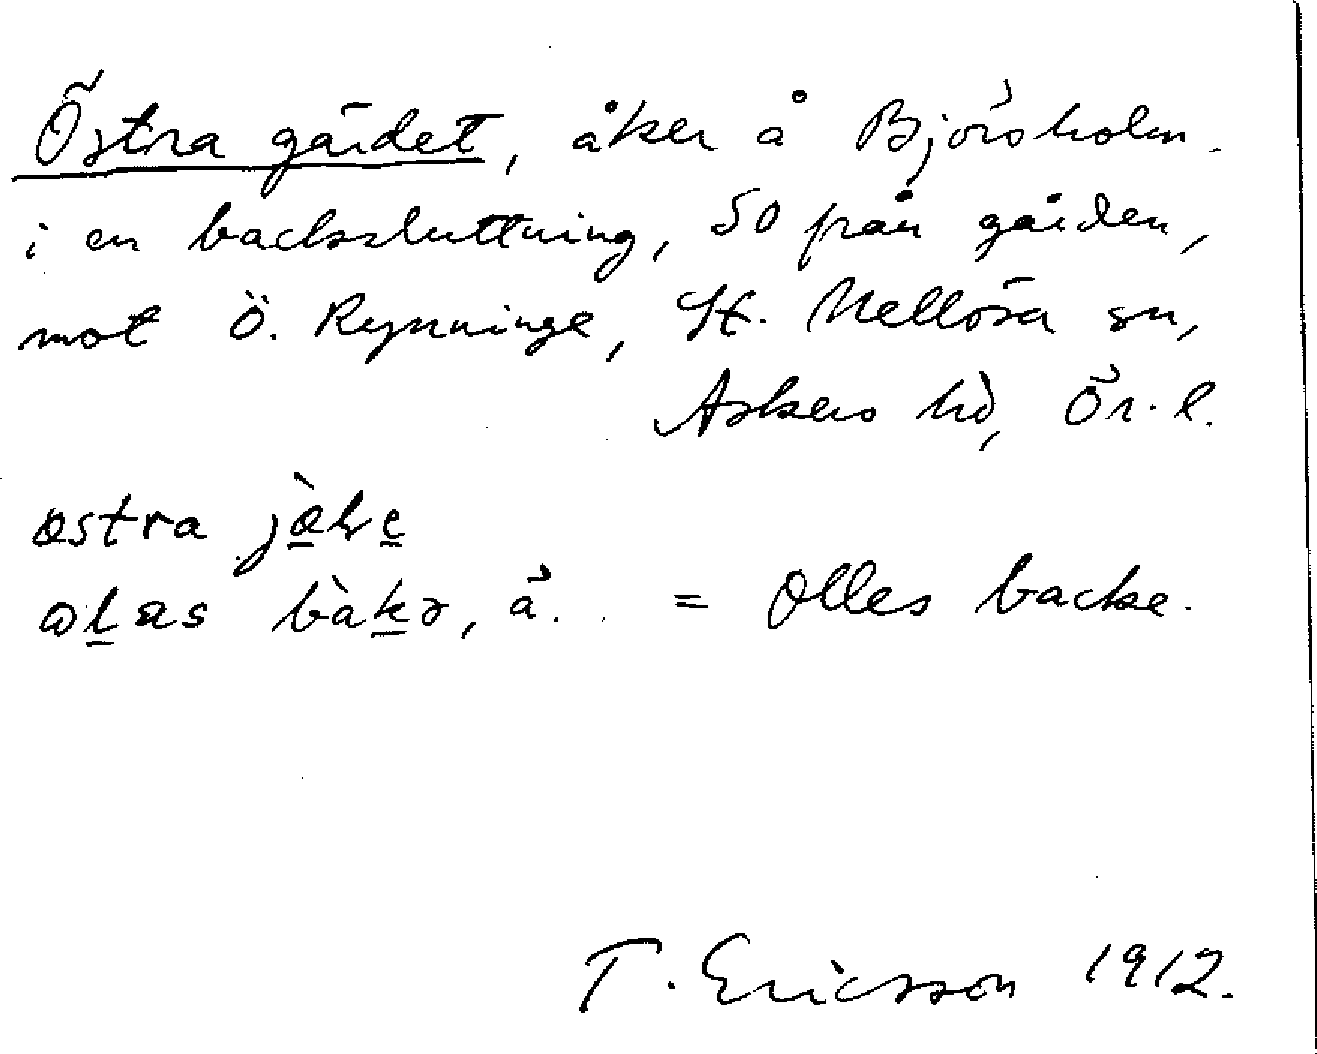 Östra gärdet, åker å Björsholm.
i en backsluttning, SO från gården,
mot Ö. Rynninge, St. Mellösa sn,
Askers hd, Ör. l.
östra
= Olles backe.
T. Ericsson 1912.